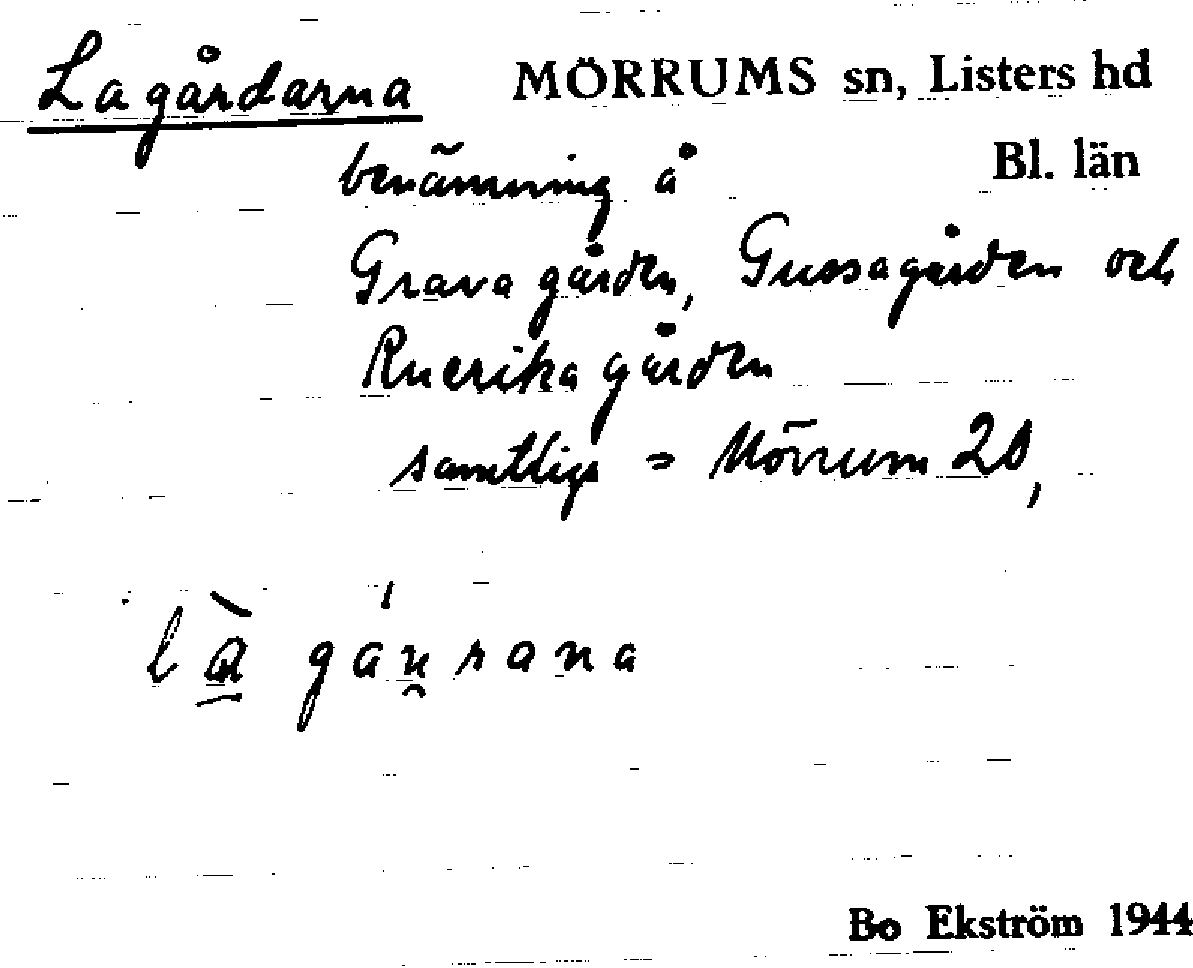 Lagårdarna MÖRRUMS sn, Listers hd
benämning å Bl. län
Gravagården, Gussagården och
Ruerikagården
samtliga = Mörrum 20,
Bo Ekström 1944